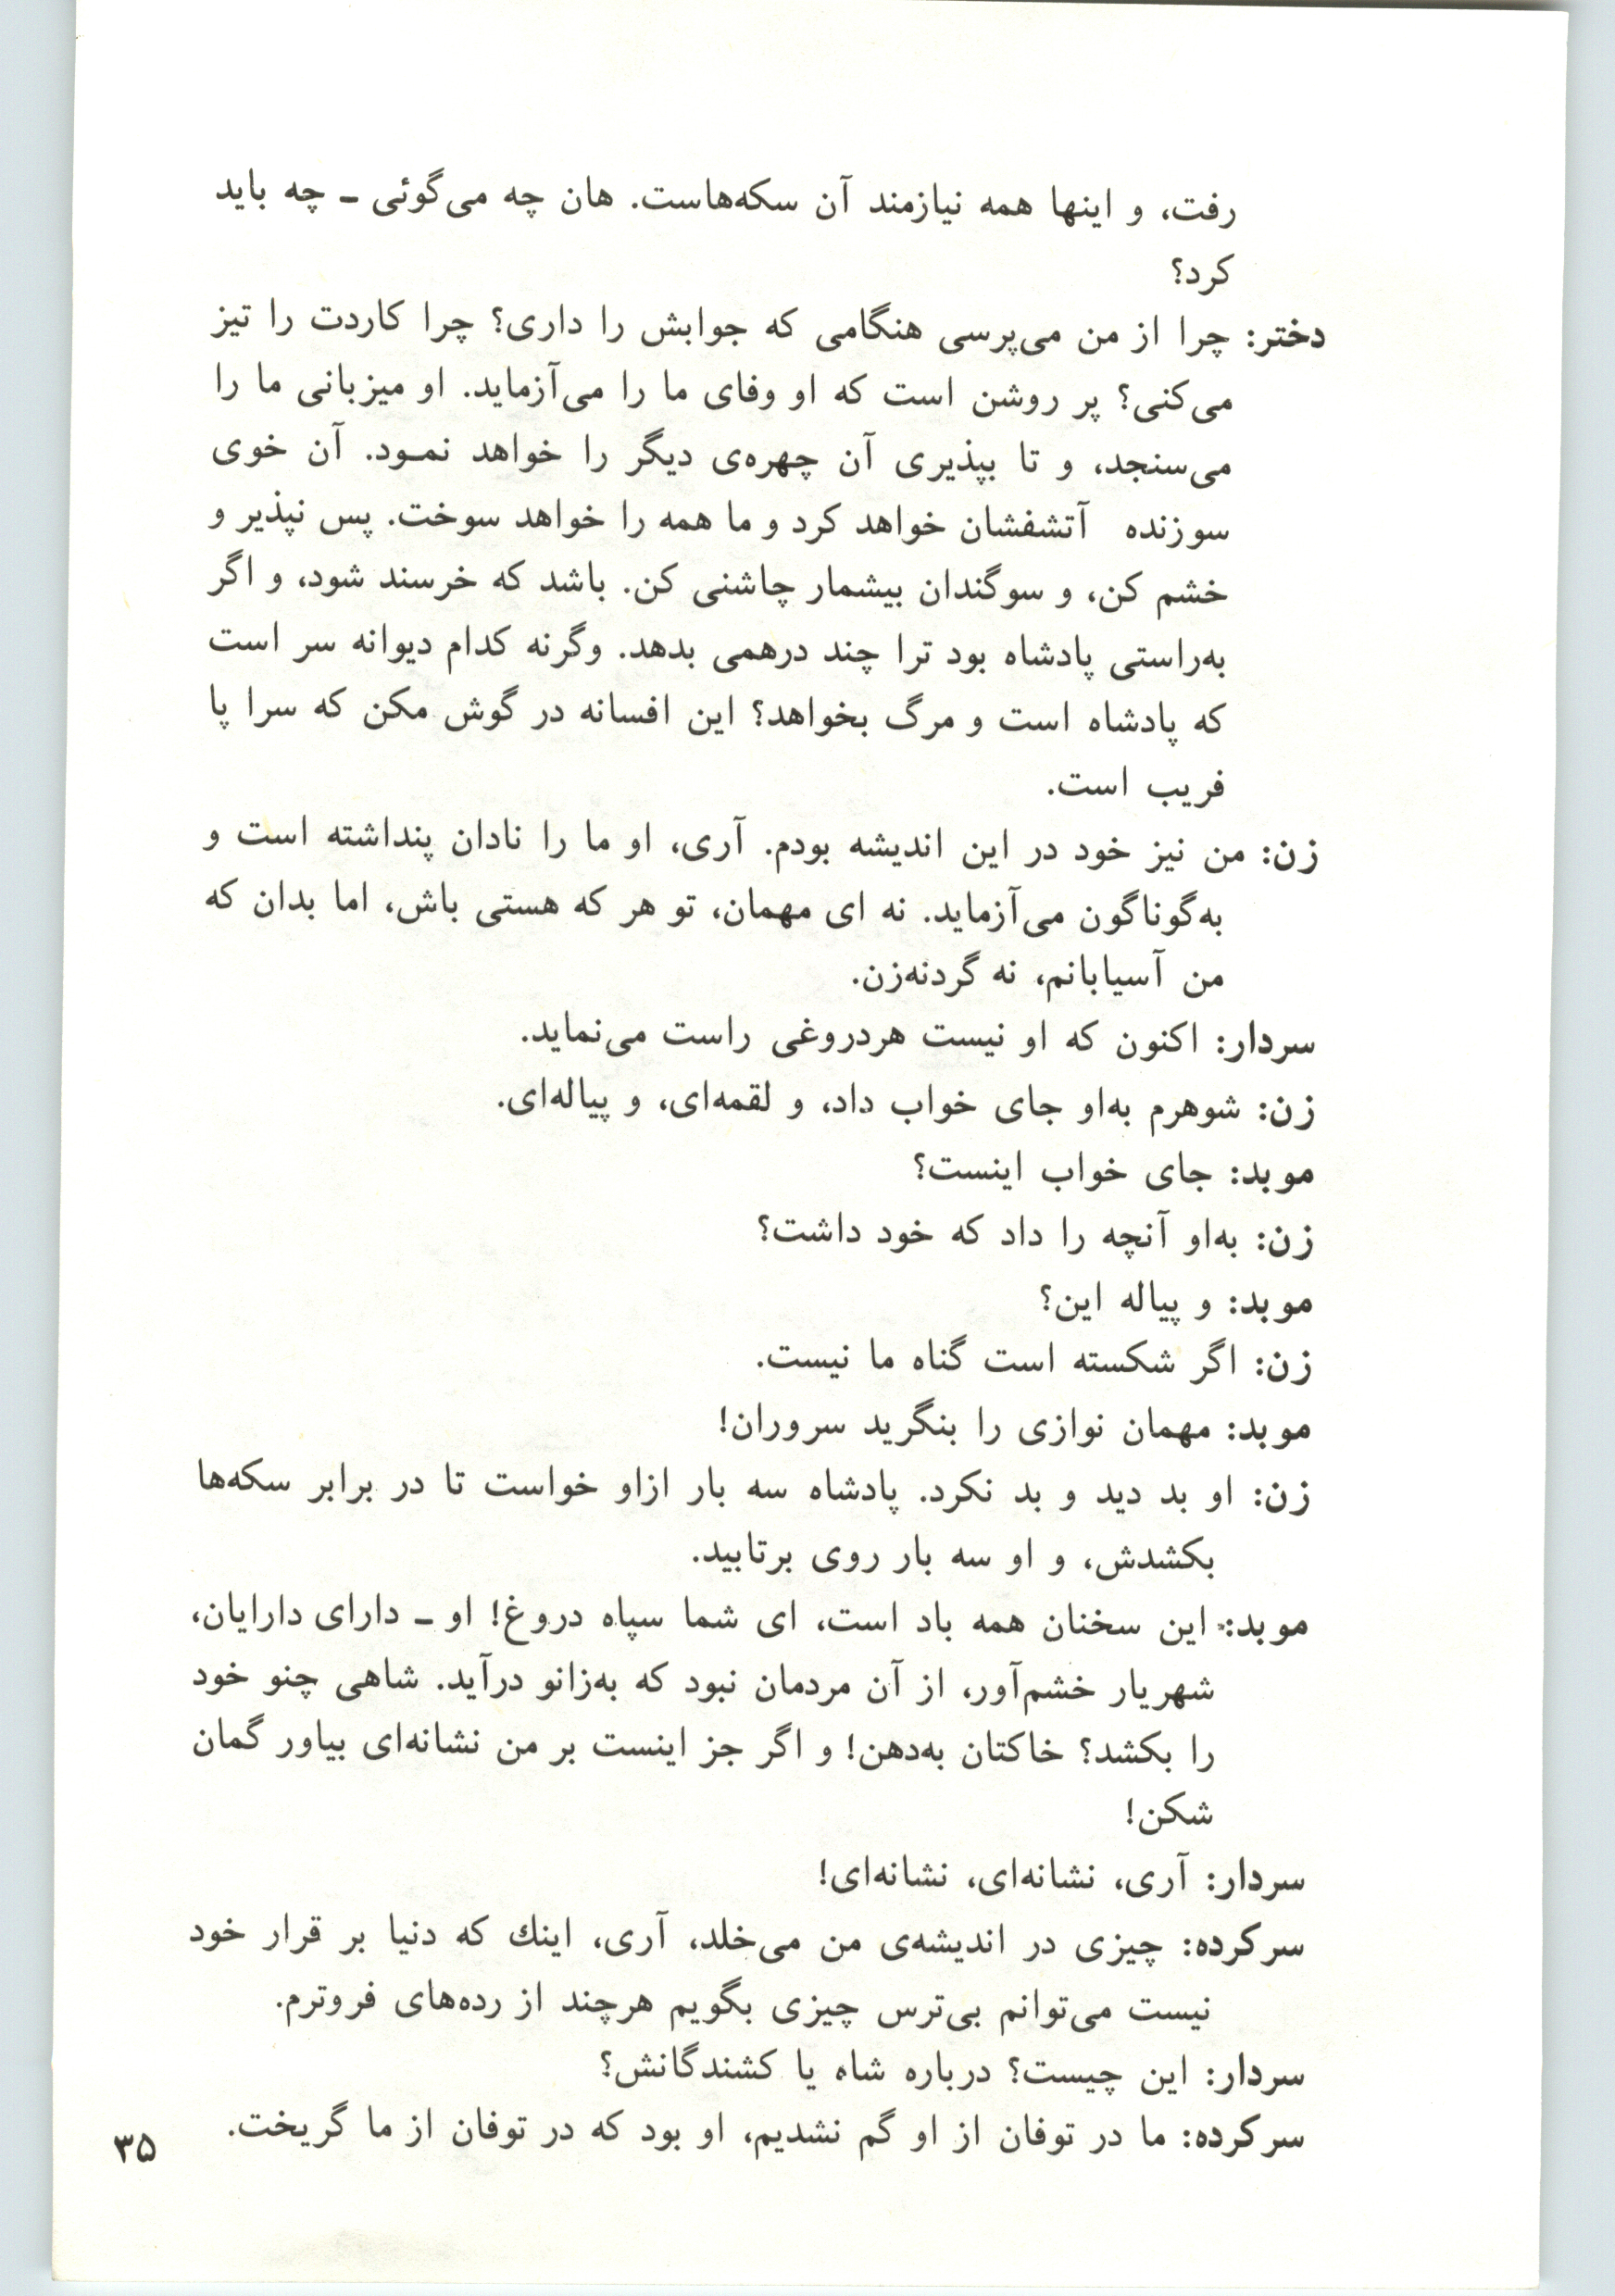 رفت، و اینها همه نیازمند آن سکه‌هاست. هان چه می‌گوئی ــ چه باید
کرد؟
دختر: چرا از من می‌پرسی هنگامی که جوابش را داری؟ چرا کاردت را تیز
می‌کنی؟ پر روشن است که او وفای ما را می‌آزماید. او میزبانی ما را
می‌سنجد، و تا بپذیری آن چهره‌ی دیگر را خواهد نمـود. آن خوی
سوزنده آتشفشان خواهد کرد و ما همه را خواهد سوخت. پس نپذیر و
خشم کن، و سوگندان بیشمار چاشنی کن. باشد که خرسند شود، و اگر
به‌راستی پادشاه بود ترا چند درهمی بدهد. وگرنه کدام دیوانه سر است
که پادشاه است و مرگ بخواهد؟ این افسانه در گوش مکن که سرا پا
فریب است.
زن: من نیز خود در این اندیشه بودم. آری، او ما را نادان پنداشته است و
به‌گوناگون می‌آزماید. نه ای مهمان، تو هر که هستی باش، اما بدان که
من آسیابانم، نه گردنه‌زن.
سردار: اکنون که او نیست هردروغی راست می‌نماید.
زن: شوهرم به‌او جای خواب داد، و لقمه‌ای، و پیاله‌ای.
موبد: جای خواب اینست؟
زن: به‌او آنچه را داد که خود داشت؟
موبد: و پیاله این؟
زن: اگر شکسته است گناه ما نیست.
موبد: مهمان نوازی را بنگرید سروران!
زن: او بد دید و بد نکرد. پادشاه سه بار ازاو خواست تا در برابر سکه‌ها
بکشدش، و او سه بار روی برتابید.
موبد: این سخنان همه باد است، ای شما سپاه دروغ! او ــ دارای دارایان،
شهریار خشم‌آور، از آن مردمان نبود که به‌زانو درآید. شاهی چنو خود
را بکشد؟ خاکتان به‌دهن! و اگر جز اینست بر من نشانه‌ای بیاور گمان
شکن!
سردار: آری، نشانه‌ای، نشانه‌ای!
سرکرده: چیزی در اندیشه‌ی من می‌خلد، آری، اینك که دنیا بر قرار خود
نیست می‌توانم بی‌ترس چیزی بگویم هرچند از رده‌های فروترم.
سردار: این چیست؟ درباره شاه یا کشندگانش؟
سرکرده: ما در توفان از او گم نشدیم، او بود که در توفان از ما گریخت.
۳۵